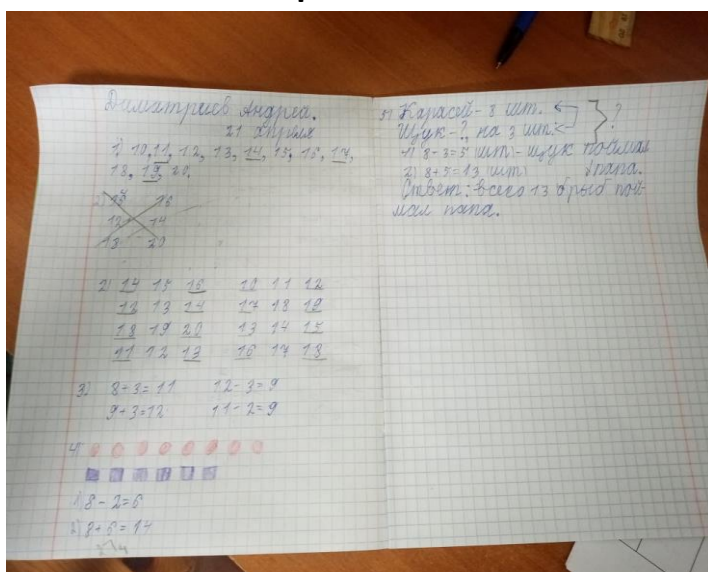 Димитриев Андрей.
21 апреля
1) 10, 11, 12, 13, 14, 15, 16, 17,
18, 19, 20.
2) 16
12 14
13 20
2) 14 15 16 10 11 12
12 13 14 17 18 19
18 19 20 13 14 15
11 12 13 16 17 18
3) 8+3=11 12-3=9
9+3=12 11-2=9
4)
1) 8-2=6
2) 8+6=14
5) Карасей - 8 шт.
Щук - ?, на 3 шт. < ?
1) 8-3=5 (шт) - щук поймал
2) 8+5=13 (шт) папа.
Ответ: всего 13 рыб пой-
мал папа.